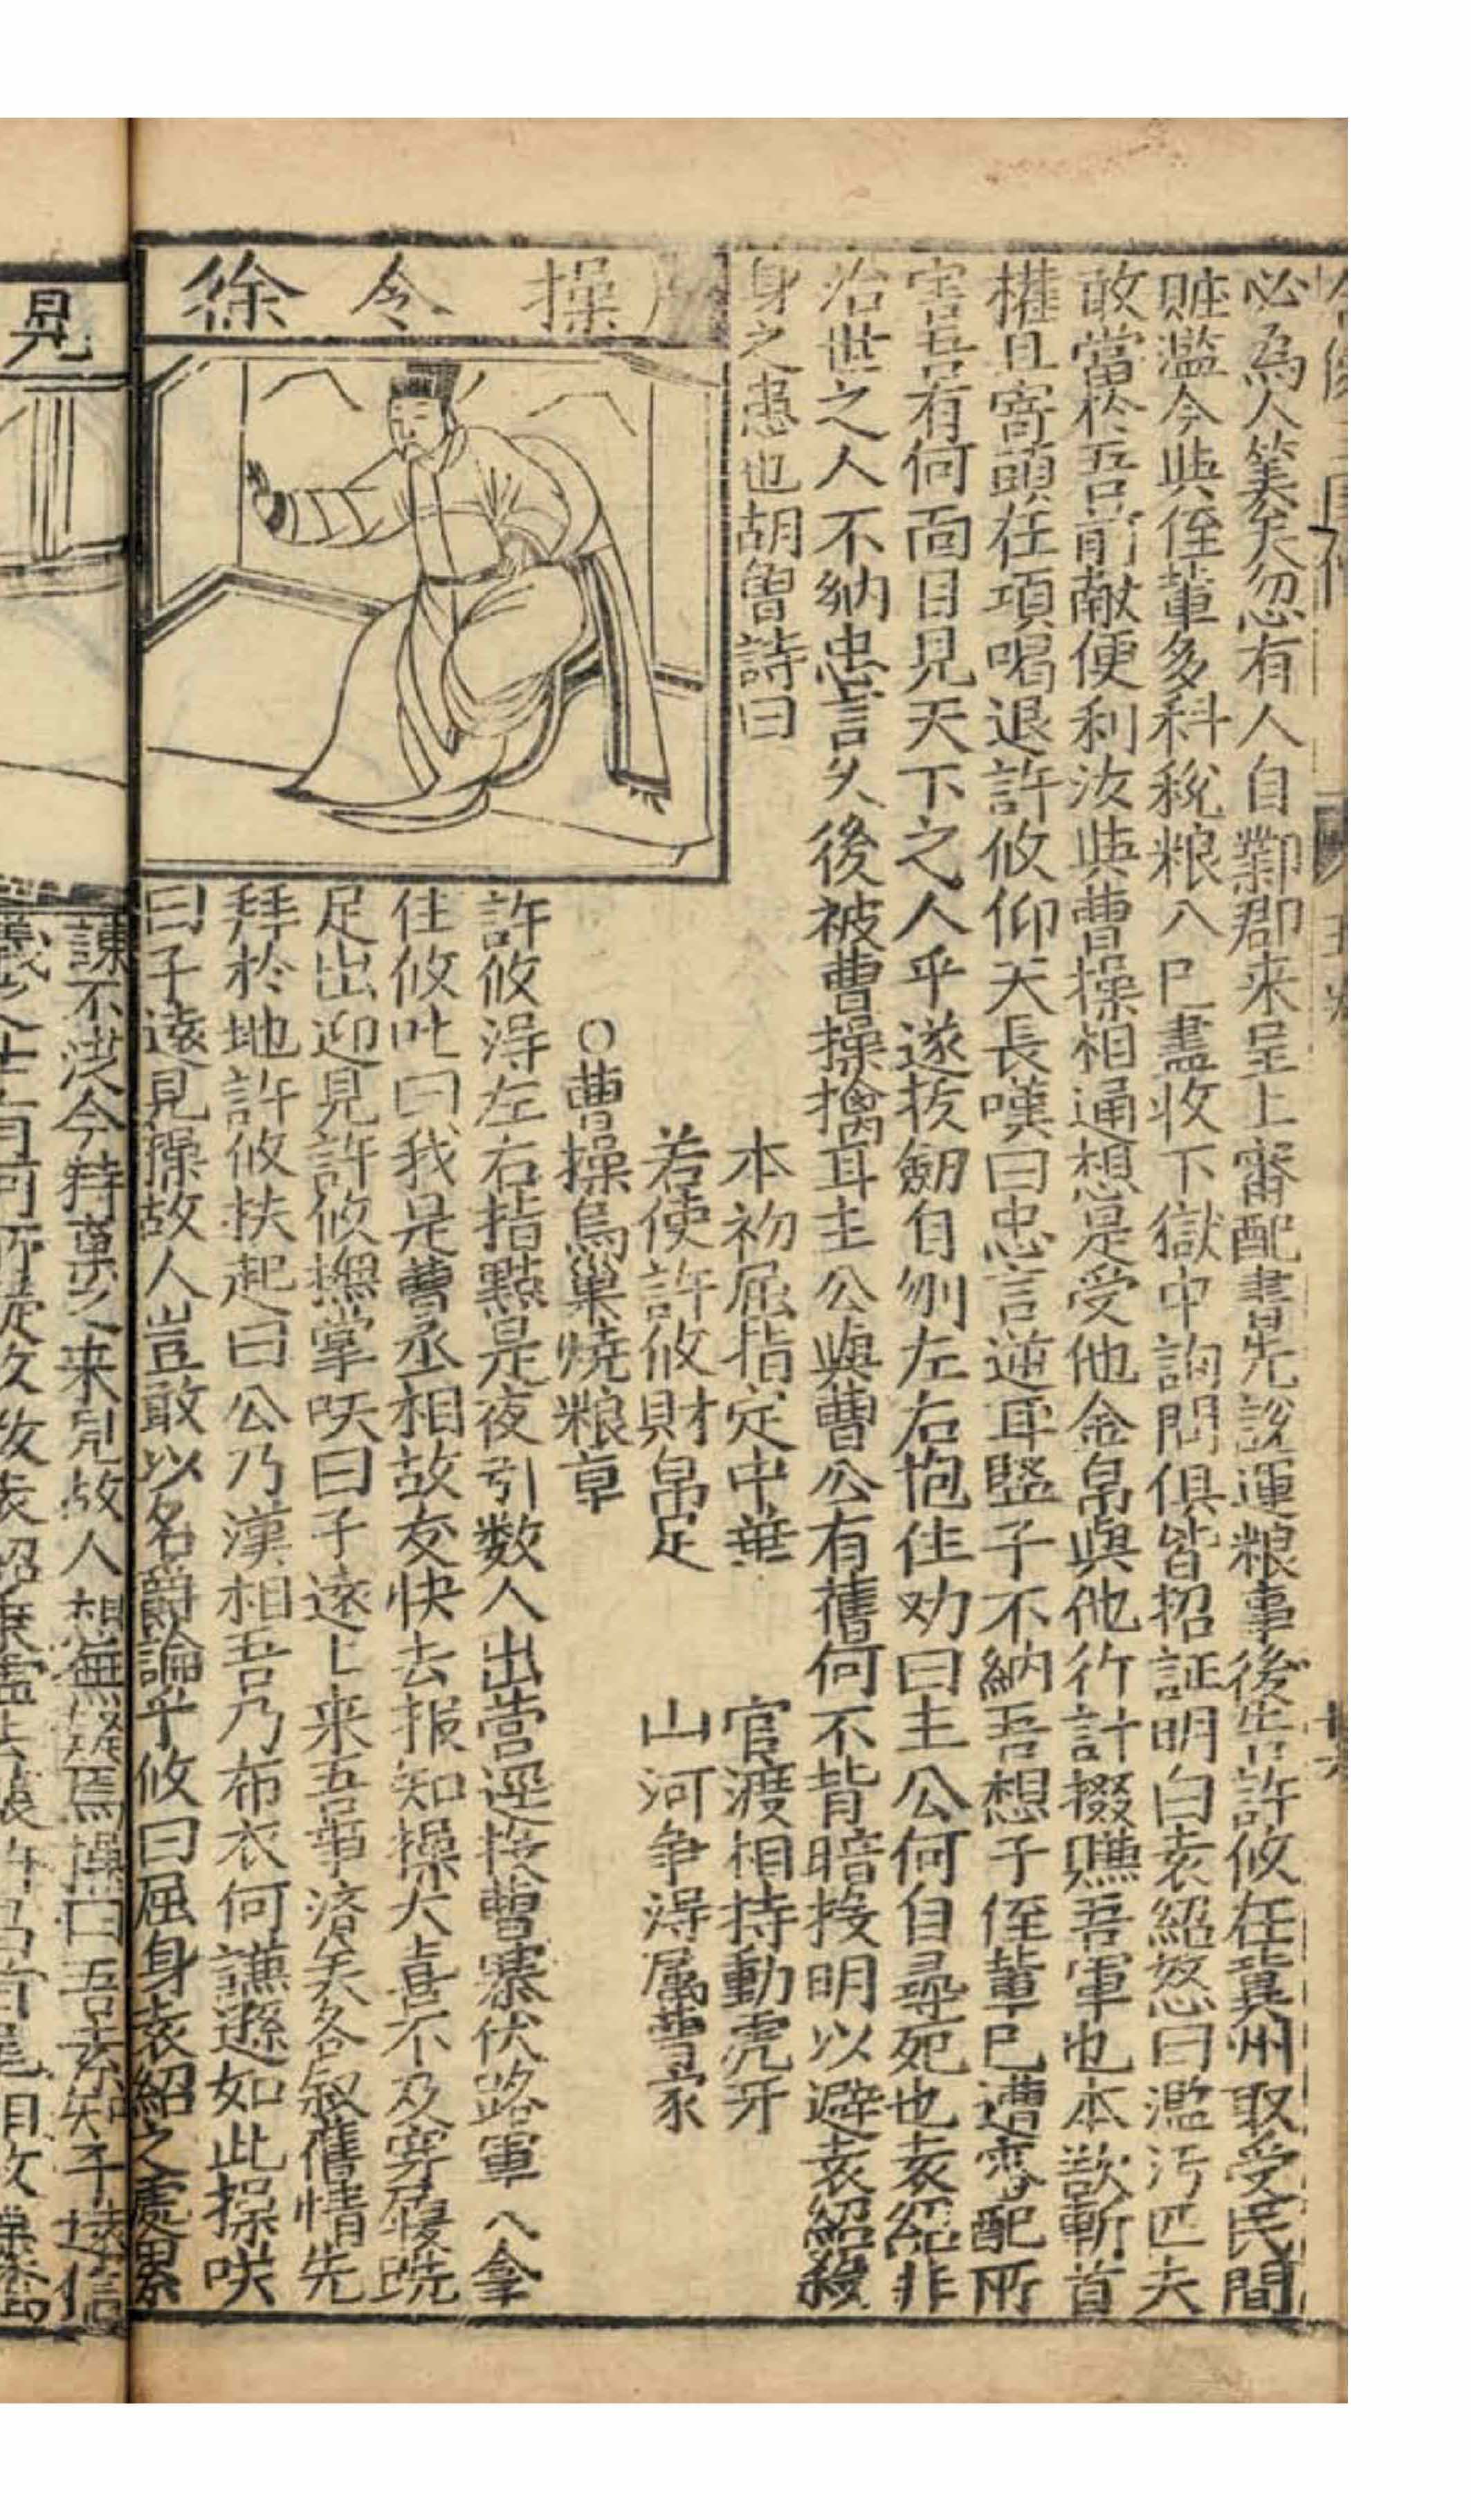 必為人笑矣忽有人自鄴郡来呈上審配書先說運粮事後告許攸在冀州取受民間
賍濫今與侄輩多科稅粮入巳盡收下獄中詢問俱皆招証明白袁紹怒曰濫汚匹夫
敢當於吾前献便利汝與曹操相通想是受他金帛與他行計掇賺吾軍也本欲斬首
權且寄頭在項喝退許攸仰天長嘆曰忠言逆耳竪子不納吾想子侄輩巳遭審配所
害吾有何面目見天下之人乎遂拔劒自刎左右抱住劝曰主公何自尋死也袁紹非
治世之人不納忠言久後被曹操擒耳主公與曹公有舊何不背暗投明以避袁紹殺
身之患也胡曽詩曰
本初屈指定中華 官渡相持動虎牙
若使許攸財帛足 山河争得属曹家
○曹操烏巢燒粮草
許攸淂左右指點是夜引数人出营逕投曹寨伏路軍人拿
住攸叱曰我是曹丞相故友快去报知操大喜不及穿履跣
足出迎見許攸撫掌咲曰子遠上来吾事済矣各叙舊情先
拜於地許攸扶起曰公乃漢相吾乃布衣何謙遜如此操咲
曰子遠見操故人豈敢以名爵論乎攸曰屈身袁紹之處累
操令徐
晃
諫不從今特棄之来見故人想無疑焉操曰吾素知子遠信